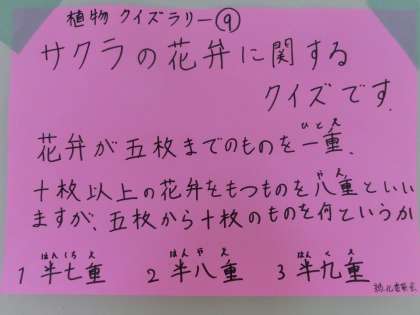 植物 クイズラリー⑨
サクラの花弁に関する
クイズです.
花弁が五枚までのものを一重、
ひとえ
十枚以上の花弁をもつものを八重といい
やえ
ますが、五枚から十枚のものを何というか
1 半七重 2 半八重 3 半九重
はんしちえ はんやえ はんくえ
緑化委員会